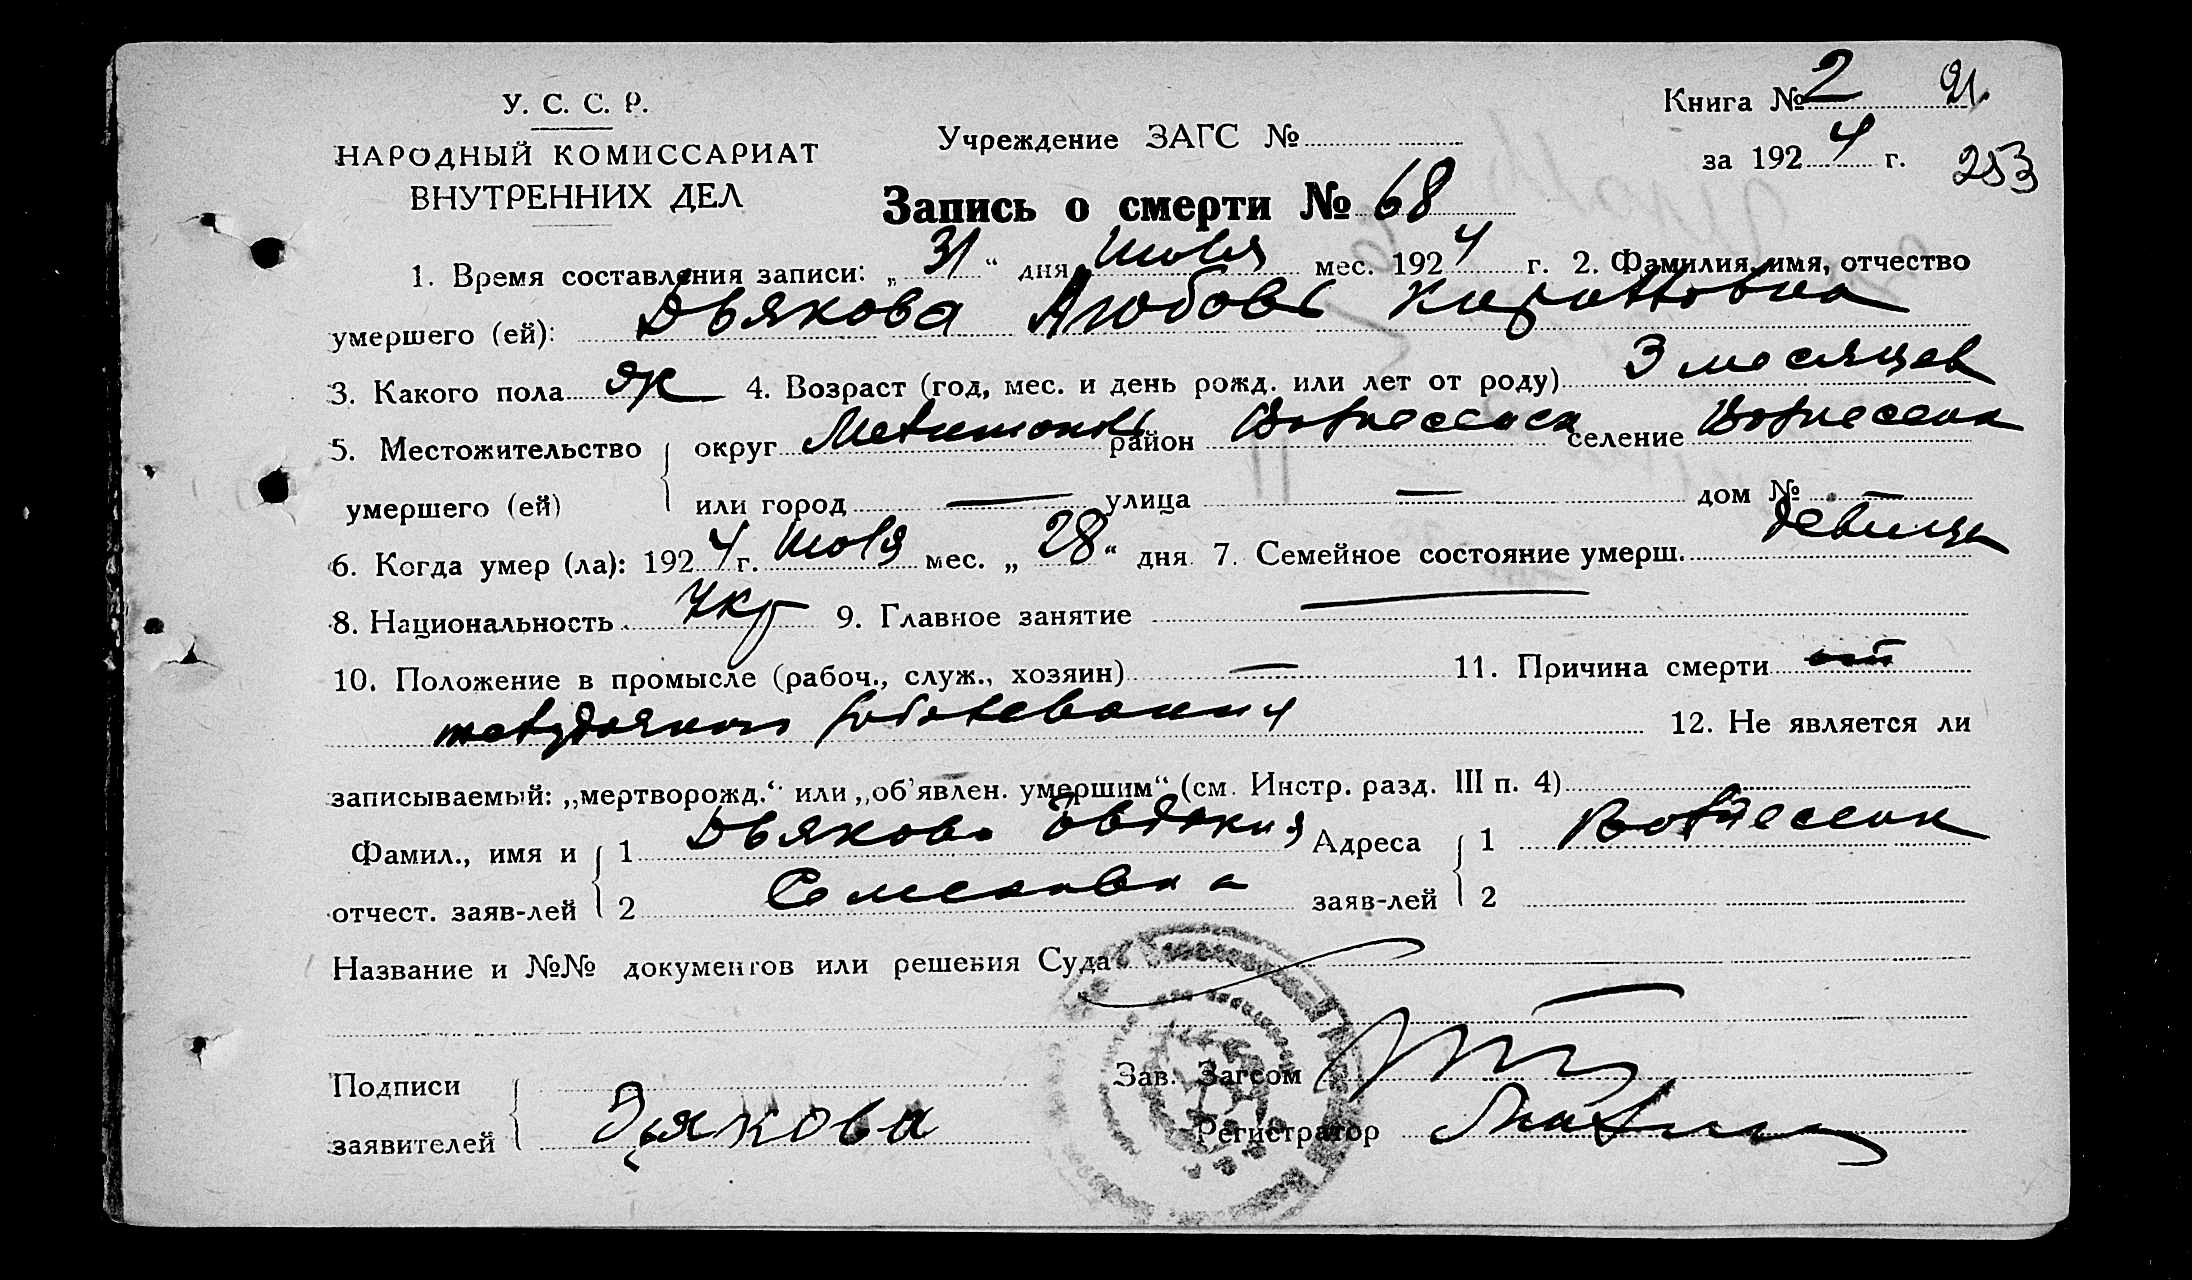 У. С. С. Р.
НАРОДНЫЙ КОМИССАРИАТ
ВНУТРЕННИХ ДЕЛ
Учреждение ЗАГС №
Книга № 2 91.
за 1924 г. 253
Запись о смерти № 68
1. Время составления записи: „31“ дня июля мес. 1924 г. 2. Фамилия, имя, отчество
умершего (ей): Дьякова Любовь
3. Какого пола ж 4. Возраст (год, мес. и день рожд. или лет от роду) 3 месяцев
5. Местожительство округ район Вознесенск селение Вознесенк
умершего (ей) или город — улица — дом № —
6. Когда умер (ла): 1924 г. июля мес. „28“ дня 7. Семейное состояние умерш. девица
8. Национальность Укр 9. Главное занятие —
10. Положение в промысле (рабоч., служ., хозяин) — 11. Причина смерти от
желудочного заболевания 12. Не является ли
записываемый: „мертворожд.“ или „об'явлен. умершим“ (см. Инстр. разд. III п. 4)
Фамил., имя и 1 Дьякова Евдокия Адреса 1 Вознесенк
отчест. заяв-лей 2 Семеновна заяв-лей 2
Название и №№ документов или решения Суда
Подписи Зав. Загсом
заявителей Дьякова Регистратор